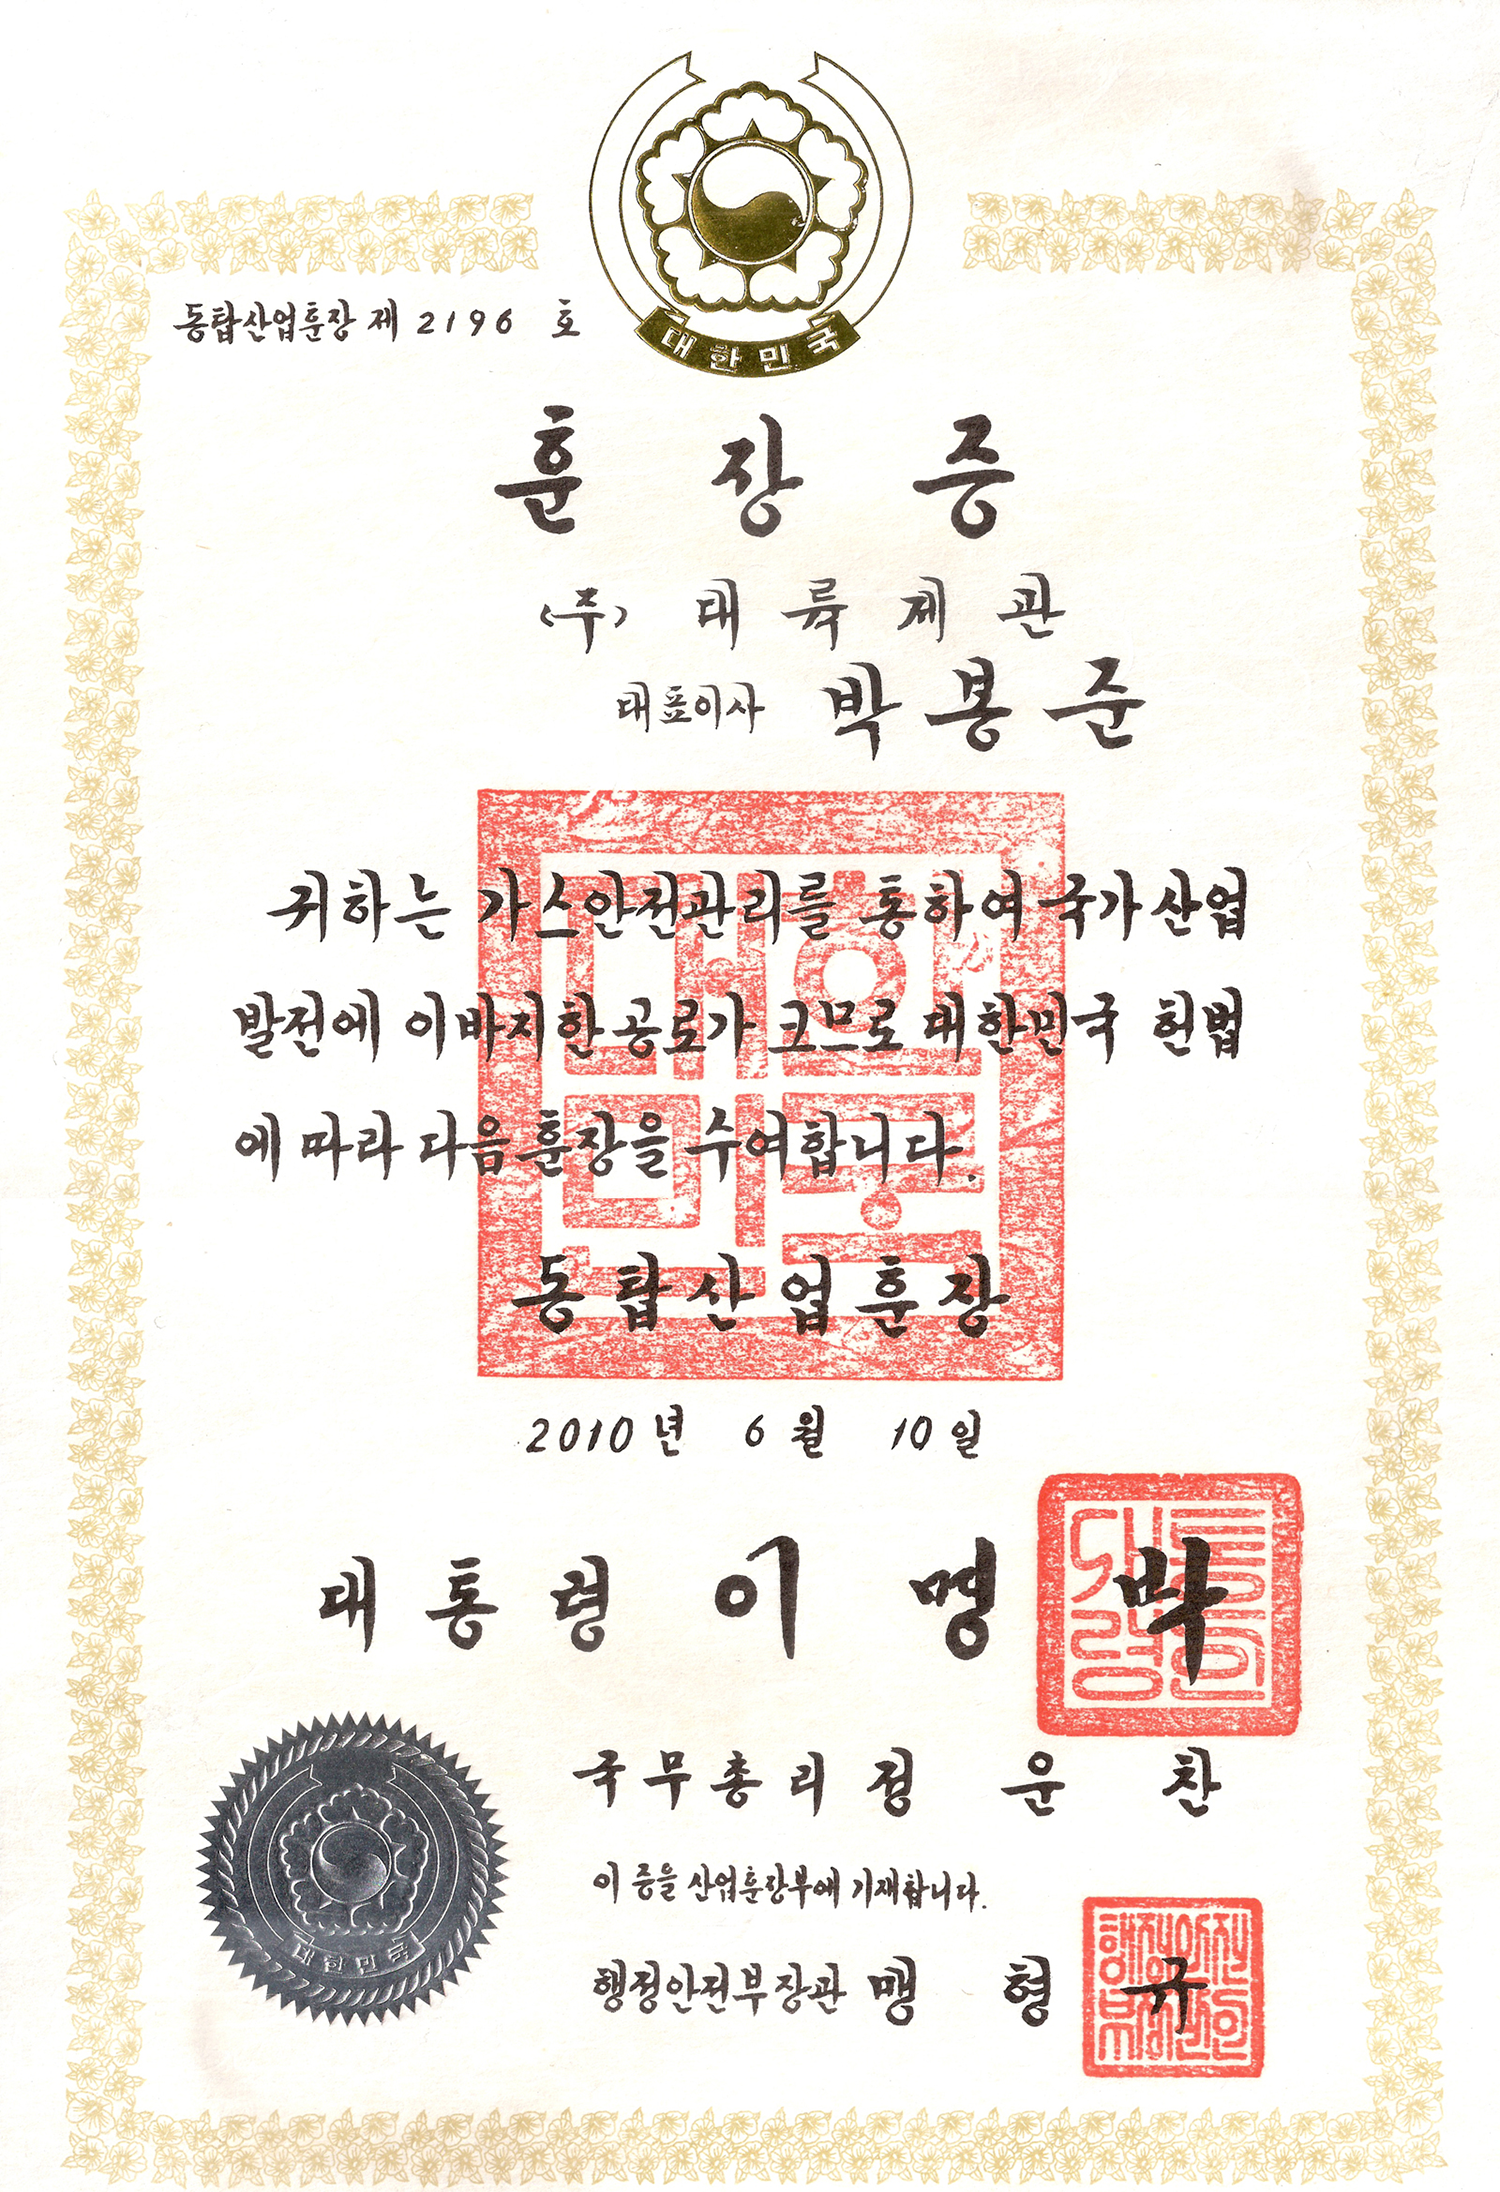 대한민국
동탑산업훈장 제 2196 호
훈장증
(주) 대륙제관
대표이사 박봉준
귀하는 가스안전관리를 통하여 국가산업
발전에 이바지한 공로가 크므로 대한민국 헌법
에 따라 다음 훈장을 수여합니다.
동탑산업훈장
2010년 6월 10일
대통령 이명박
국무총리 정운찬
이 증을 산업훈장부에 기재합니다.
행정안전부장관 맹형규
대한민국
대한민국
대통령인